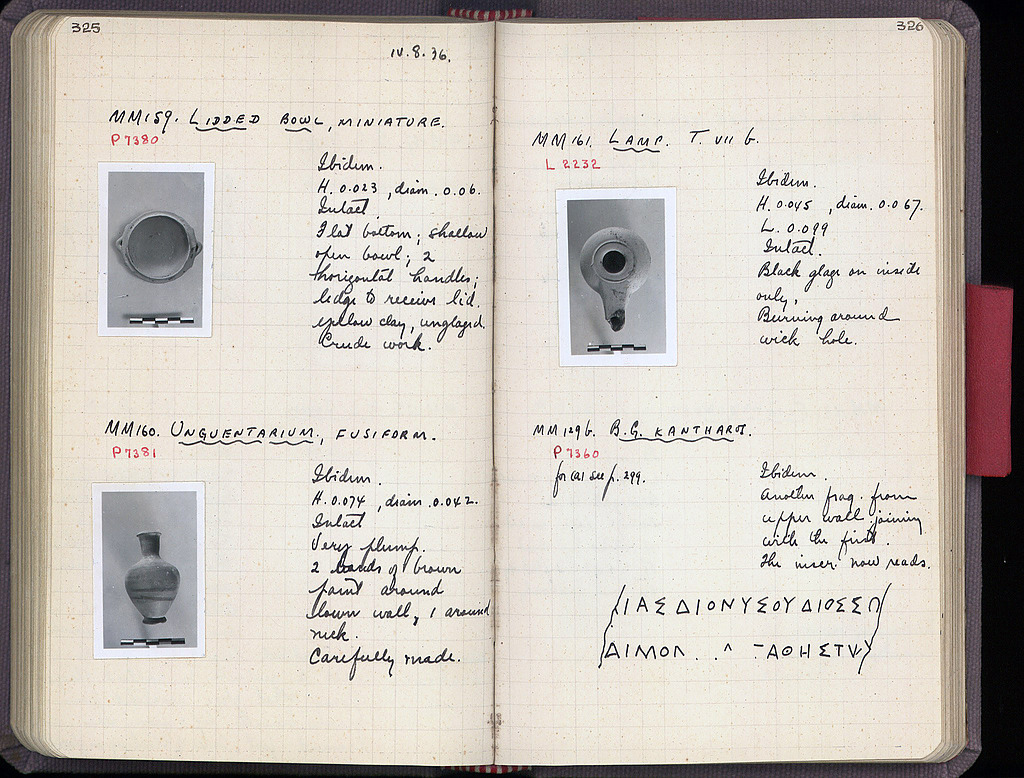 325
IV. 8. 36.
MM159. LIDDED BOWL, MINIATURE.
P 7380
Ibidem.
H. 0.023, diam. 0.06.
Intact.
Flat bottom; shallow
open bowl; 2
horizontal handles;
ledge to receive lid.
yellow clay, unglazed.
Crude work.
MM160. UNGUENTARIUM, FUSIFORM.
P 7381
Ibidem.
H. 0.074, diam. 0.042.
Intact
Very plump.
2 bands of brown
paint around
lower wall, 1 around
neck.
Carefully made.
326
MM161. LAMP. T. VII b.
L 2232
Ibidem.
H. 0.045, diam. 0.067.
L. 0.099
Intact.
Black glaze on inside
only.
Burning around
wick hole.
MM129b. B.G. KANTHAROS.
P 7360
for (a) see p. 299.
Ibidem.
Another frag. from
upper wall joining
with the first.
The inscr. now reads.
ΙΑΣ ΔΙΟΝΥΣΟΥ ΔΙΟΣΣΩ
ΔΙΜΟΛ